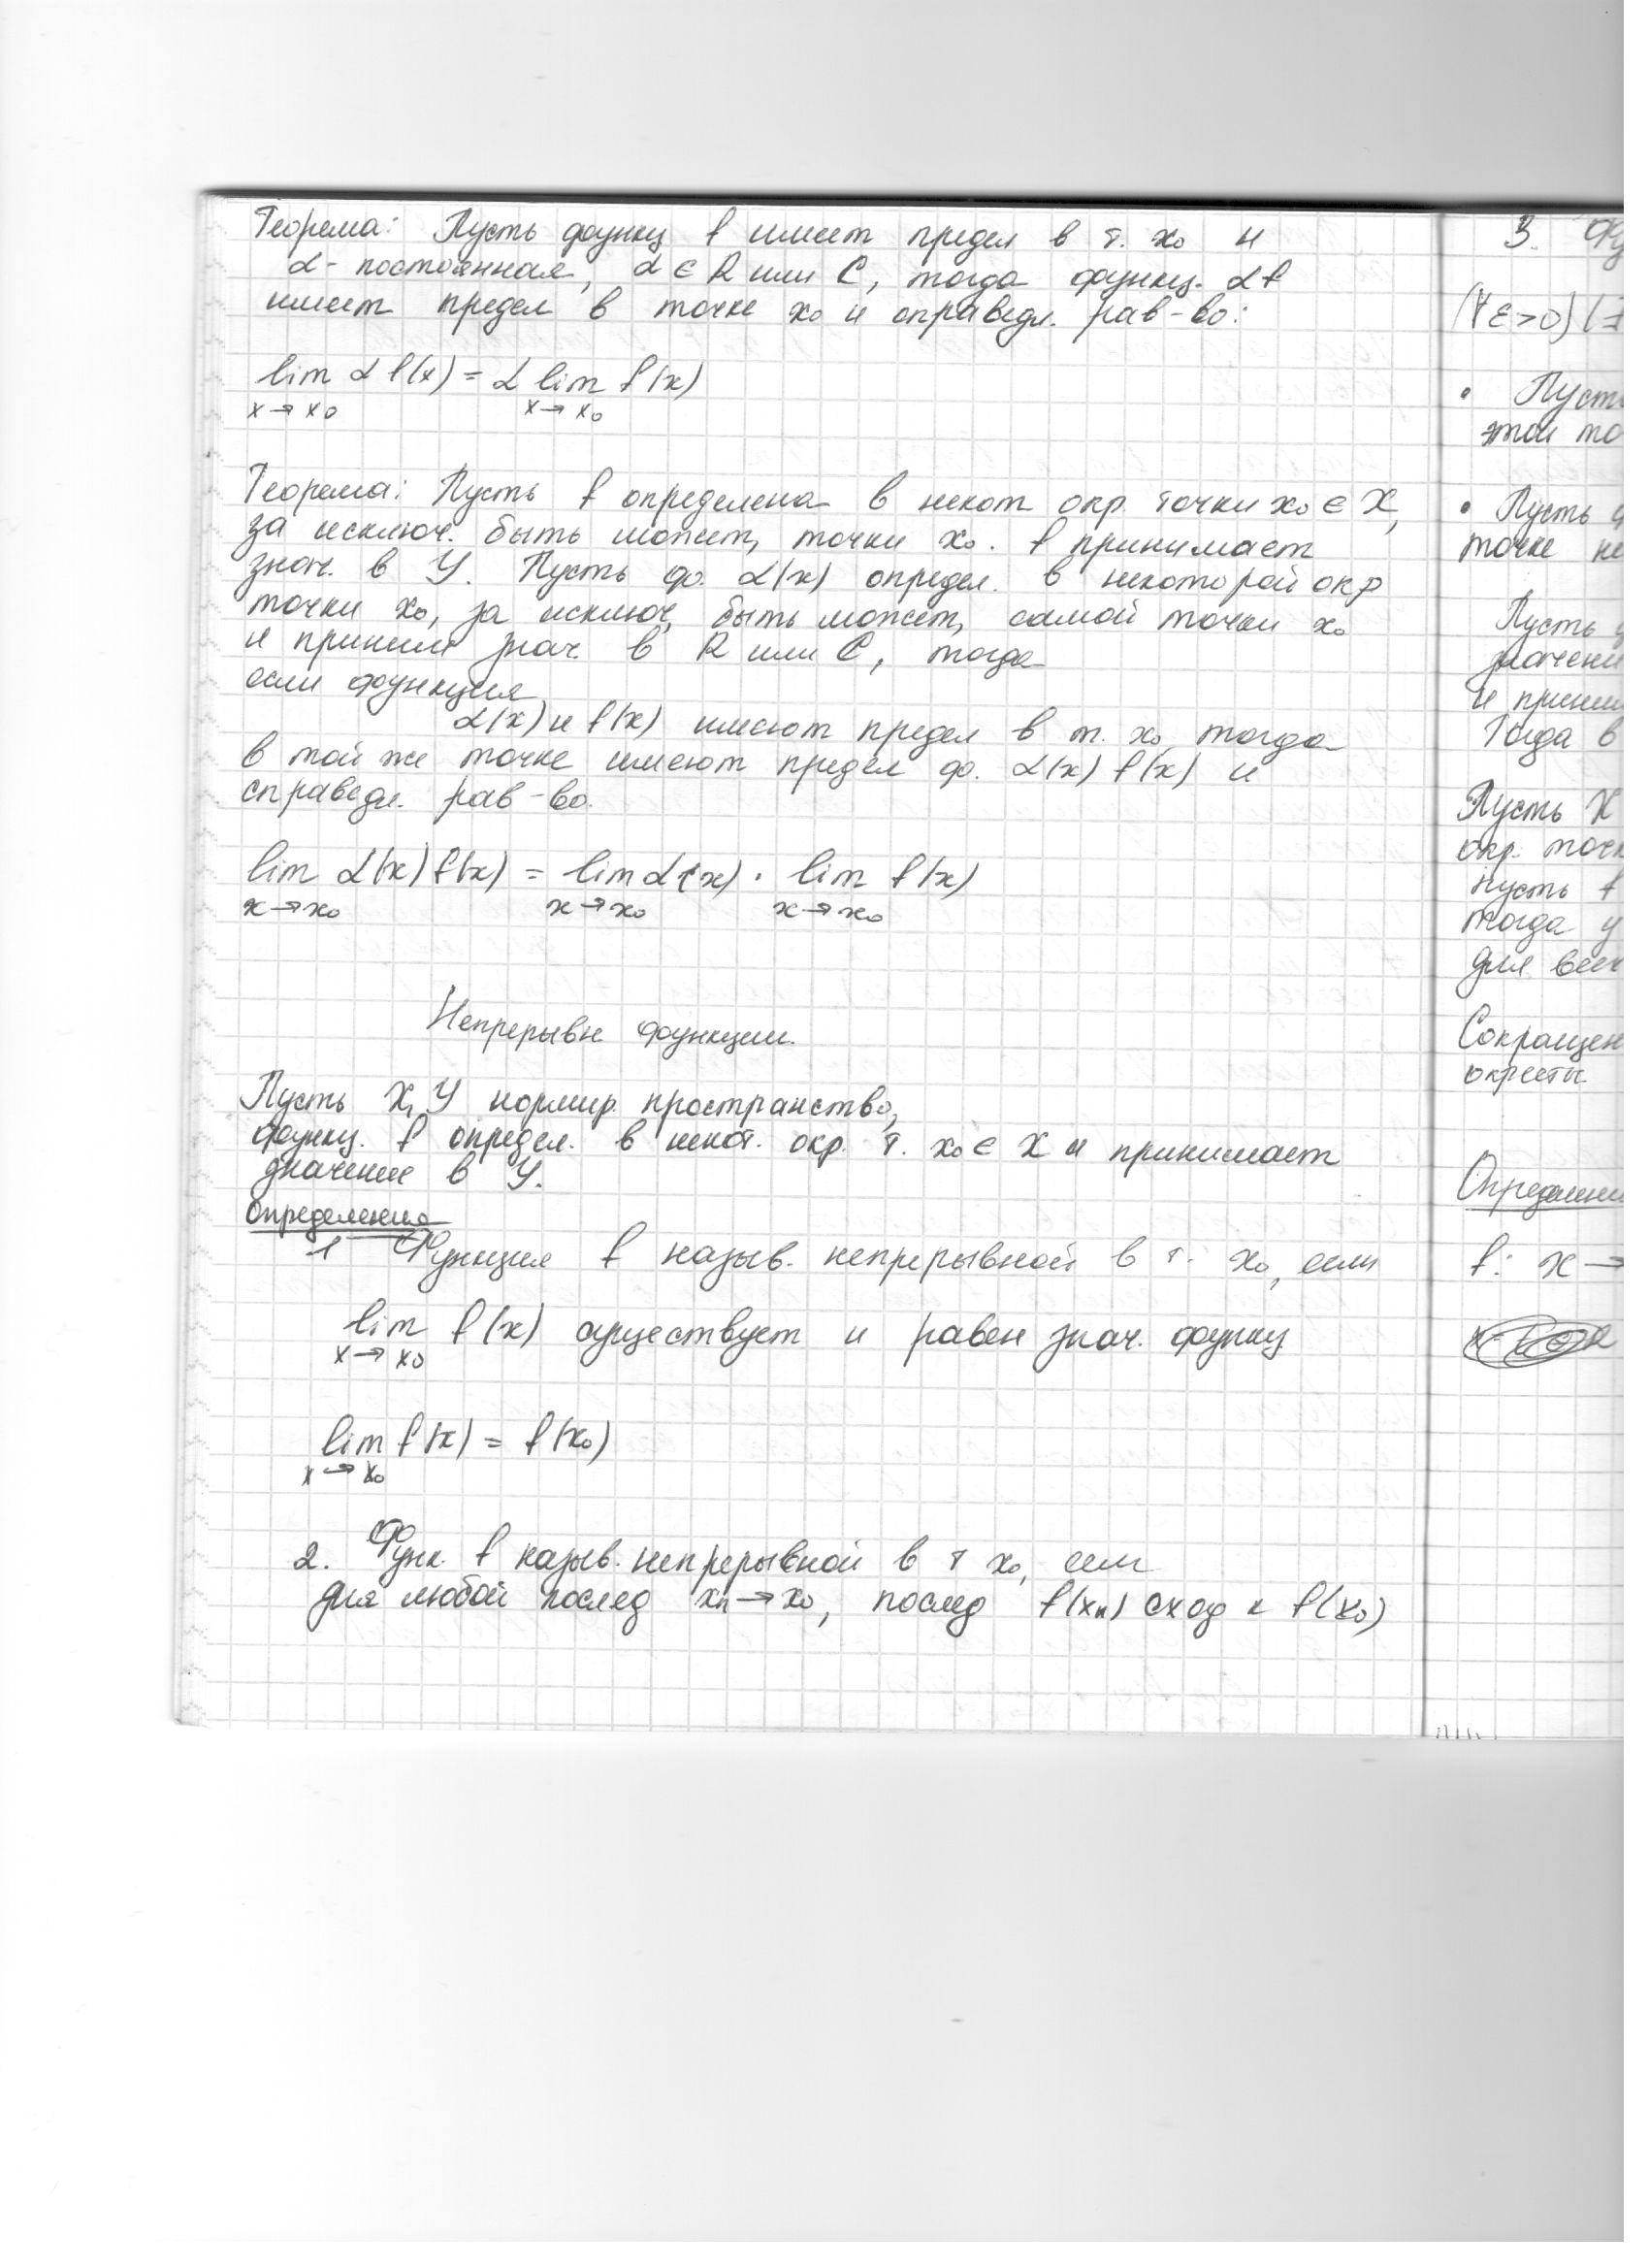 Теорема: Пусть функц f имеет предел в т. x₀ и
α - постоянная, α ∈ R или C, тогда функц. αf
имеет предел в точке x₀ и справедл. рав-во:
lim α f(x) = α lim f(x)
x→x₀ x→x₀
Теорема: Пусть f определена в некот окр. точки x₀ ∈ X,
за исключ. быть может, точки x₀. f принимает
знач. в Y. Пусть ф. α(x) определ. в некоторой окр
точки x₀, за исключ, быть может, самой точки x₀
и приним знач. в R или C, тогда
если функция
α(x) и f(x) имеют предел в т. x₀ тогда
в той же точке имеют предел ф. α(x) f(x) и
справедл. рав-во.
lim α(x) f(x) = lim α(x) · lim f(x)
x→x₀ x→x₀ x→x₀
Непрерывн функции.
Пусть X, Y нормир. пространство,
функц. f определ. в некот. окр. т. x₀ ∈ X и принимает
значение в Y.
Определения
1 Функция f назыв. непрерывной в т. x₀, если
lim f(x) существует и равен знач. функц
x→x₀
lim f(x) = f(x₀)
x→x₀
2. Функ. f назыв. непрерывной в т x₀, если
для любой послед xₙ→x₀, послед f(xₙ) сход к f(x₀)
3. Фу
(∀ε>0) (∃
• Пусть
этой то
• Пусть
точке не
Пусть
значени
и приним
Тогда в
Пусть X
окр. точк
пусть f
тогда у
для всех
Сокращен
окрестн
Определени
f: x →